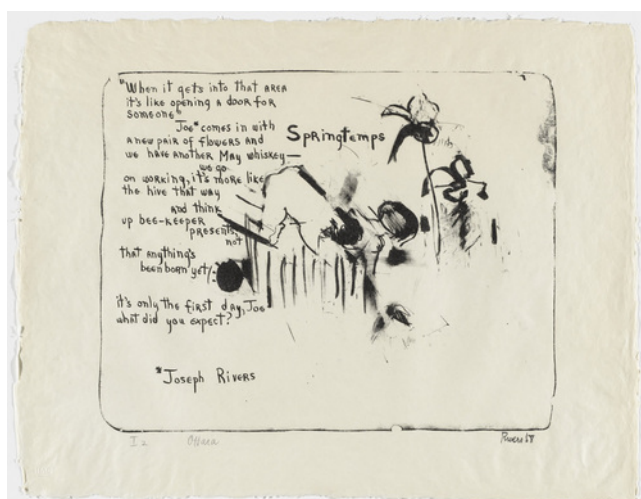 "When it gets into that area
it's like opening a door for
someone"
Joe* comes in with
a new pair of flowers and
we have another May whiskey—
we go
on working, it's more like
the hive that way
and think
up bee-keeper
presents,
not
that anything's
been born yet/:
it's only the first day, Joe
what did you expect?
Springtemps
*Joseph Rivers
I 2
O'Hara
Rivers 58